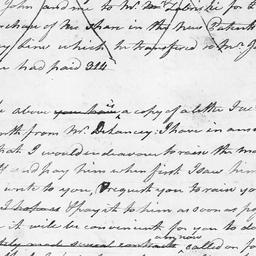 John and me to Mr. Wm. Zobriskie for t
rchase of his share in the New Patent
y line which he transfered to Mr. J
he had paid 314
e above you have is a copy of a letter I w
nth from Mr. Delancey I have in answ
that I would endeavour to raise the mo
and pay him when first I saw him
write to you, & request you to raise yo
I hope & pay it to him as soon as po
it will be convenient for you to do
tely made several contracts any now called on fo